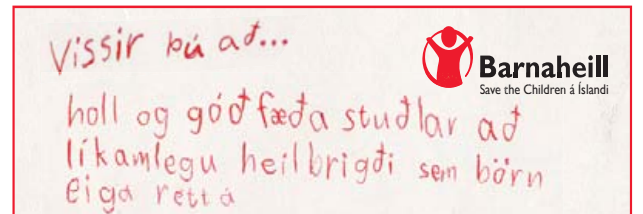 Vissir þú að...
Barnaheill
Save the Children á Íslandi
holl og góð fæða stuðlar að
líkamlegu heilbrigði sem börn
eiga rett á